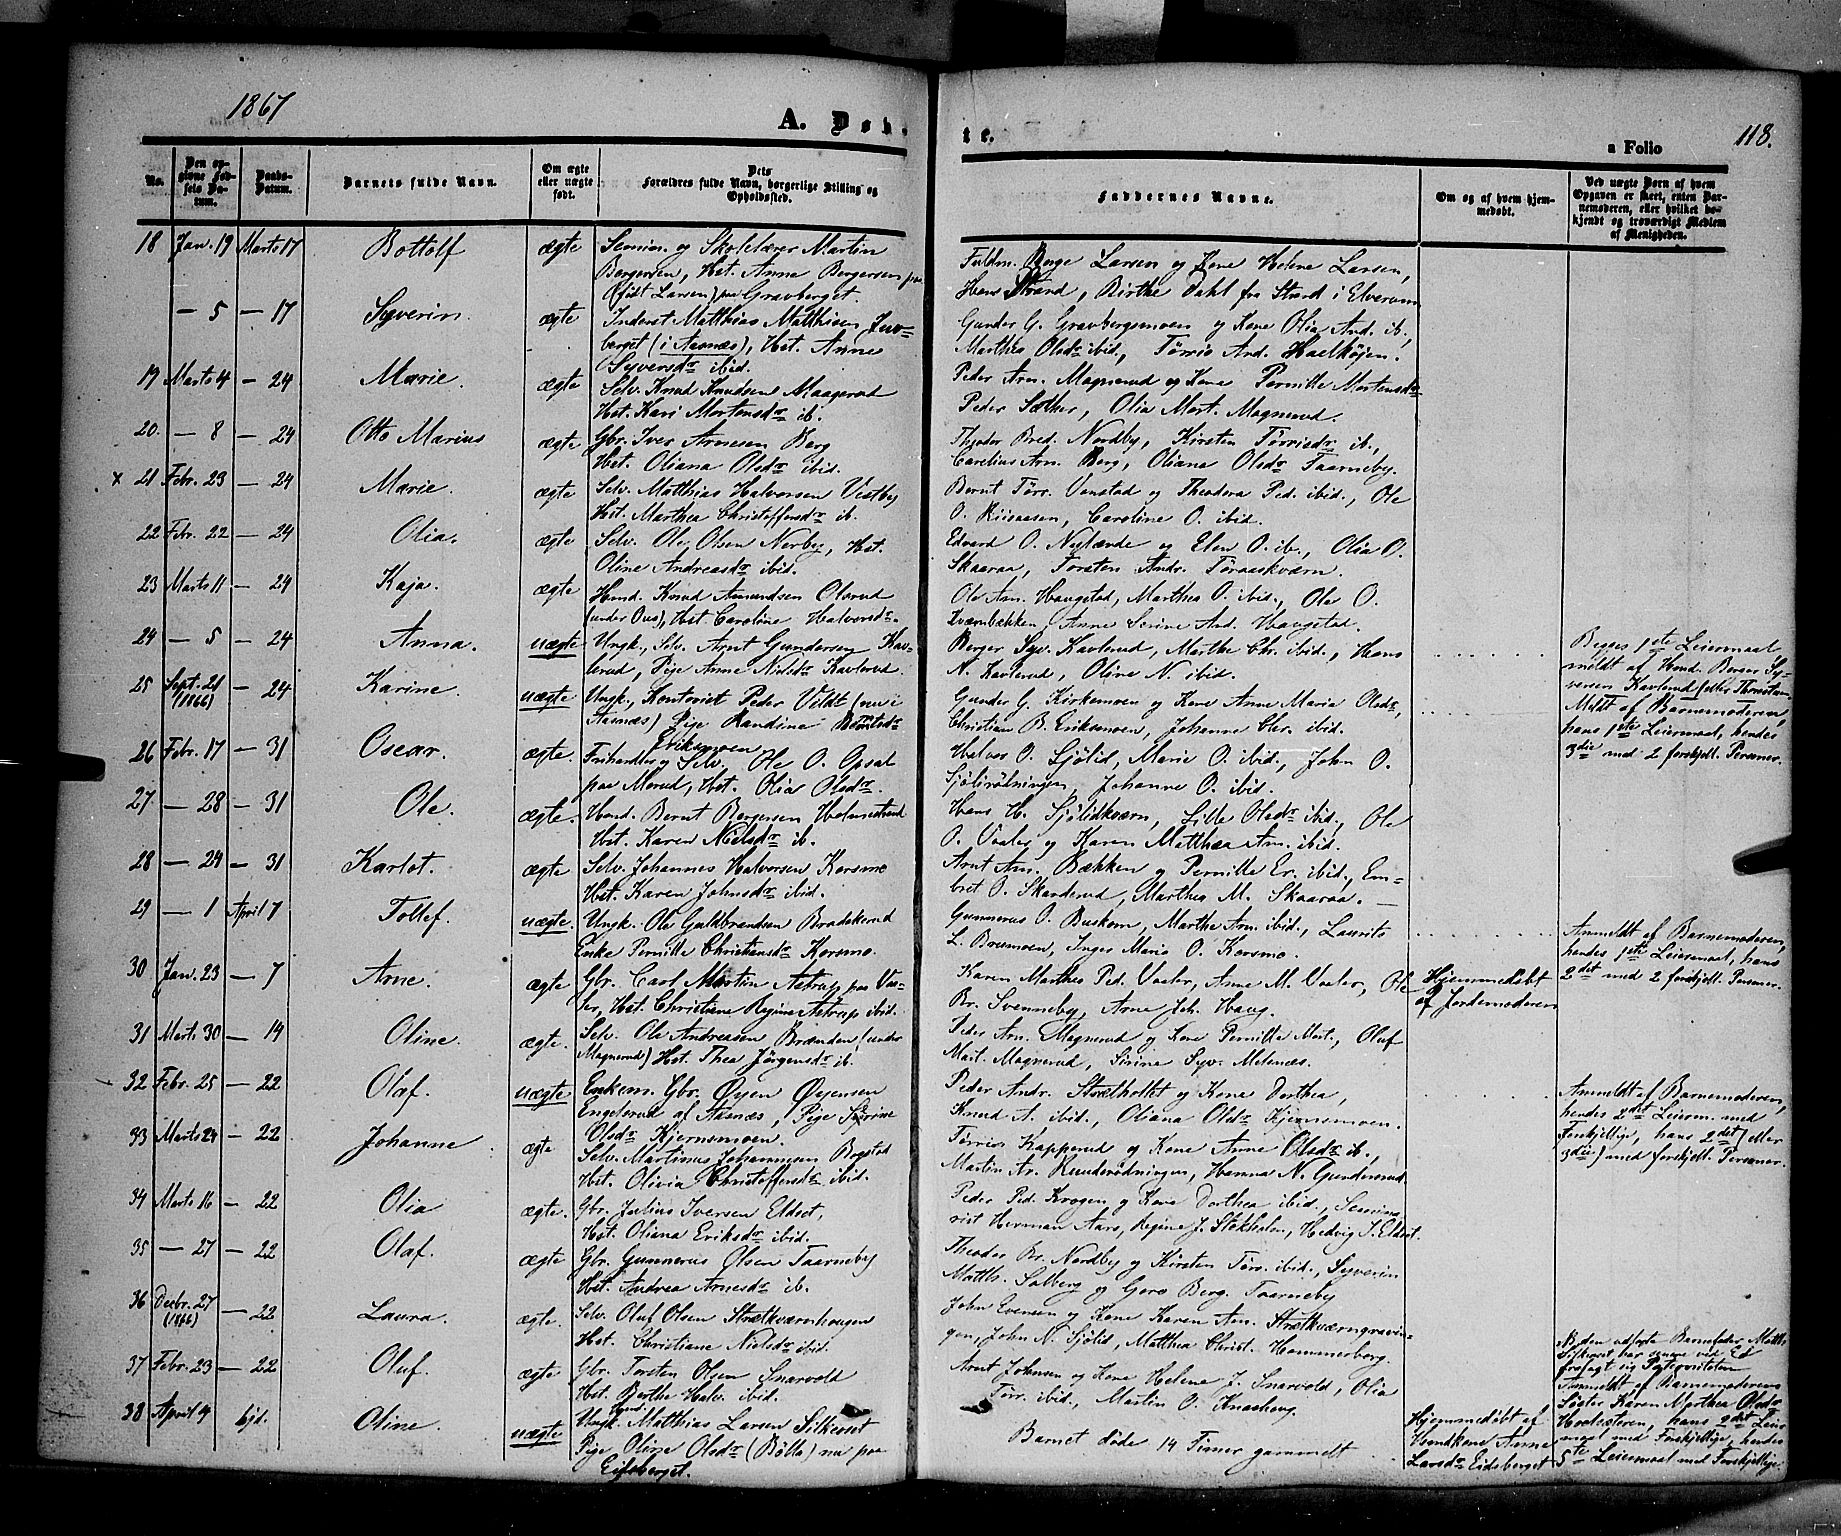 1867
A. Døbte.
a Folio
118.
No.
Den opgivne Fødsels Datum.
Daabs-Datum.
Barnets fulde Navn.
Om ægte eller uægte født.
Dets Forældres fulde Navn, borgerlige Stilling og Opholdssted.
Faddernes Navne.
Om og af hvem hjemmedøbt.
Ved uægte Børn af hvem Opgaven er skeet, enten Barnemoderen, eller hvilket bekjendt og troværdigt Medlem af Menigheden.
18 Jan. 19 Marts 17 Bottolf ægte Semin. og Skolelærer Martin
Bergersen, Hst. Anne Bergersen
(født Larsen) paa Gravberget.
Fuldm. Berge Larsen og Kone Helene Larsen,
Hans Strand, Birthe Dahl fra Strand i Elverum
— 5 — 17 Syverin. ægte Inderst Matthias Matthisen Fuv-
berget (i Aasnæs), Hst. Anne
Syversdr ibid.
Gunder G. Gravbergsmoen og Kone Olia And. ib.,
Marthea Olsdr ibid., Tørris And. Haelkøjen.
19 Marts 4 — 24 Marie. ægte Selv. Knud Knudsen Maagerud
Hst. Kari Mortensdr ib.
Peder Arn. Magnerud og Kone Pernille Mortensdr
Peder Sæther, Olia Mort. Magnerud.
20. — 8 — 24 Otto Marius ægte Gbr. Iver Arnesen Berg
Hst. Oliana Olsdr ibid.
Theodor Bred. Nordby, Kirsten Tørrisdr ib.,
Carelius Arn. Berg, Oliana Olsdr Taarneby.
x 21 Febr. 23 — 24 Marie. ægte Selv. Matthias Halvorsen Vestby
Hst. Marthea Christoffersdr ib.
Bernt Tørr. Vonstad og Theodora Ped. ibid., Ole
O. Riisaasen, Caroline O. ibid.
22 Febr. 22 — 24 Olia. ægte Selv. Ole Olsen Nerby, Hst.
Oline Andreasdr ibid.
Edvard O. Nylænde og Elen O. ib., Olia O.
Skaaraa, Torsten Andr. Toraaskværn.
23 Marts 11 — 24 Kaja. ægte Husmd. Knud Amundsen Olsrud
(under Ous), Hst. Caroline Halvorsdr.
Ole Am. Haugstad, Marthea O. ibid., Ole O.
Kværnbækken, Anne Serine And. Haugstad.
24 — 5 — 24 Anna. uægte Ungk., Selv. Arnt Gundersen Kav-
lerud, Pige Anne Nielsdr Kavlerud.
Berger Syv. Kavlerud, Marthe Chr. ibid., Hans
N. Kavlerud, Oline N. ibid.
Begges 1ste Leiermaal
meldt af Husmd. Berger Sy-
versen Kavlerud
25 Sept. 21 (1866) — 24 Karine. uægte Ungk., Kontorist Peder Vildt (nu i
Aasnæs) Pige Randine
Eriksmoen
Gunder G. Kirkemoen og Kone Anne Maria Olsdr,
Christian B. Eriksmoen, Johanne Chr. ibid.
Meldt af Barnemoderen,
hans 1ste Leiermaal, hendes
3die med 2 forskjell. Personer.
26 Febr. 17 — 31 Oscar. ægte. Frihandler og Selv. Ole O. Opsal
paa Morud, Hst. Olia Olsdr.
Halvor O. Sjølid, Marie O. ibid., John O.
Sjøliròdningen, Johanne O. ibid.
27 — 28 — 31 Ole. ægte. Husmd. Bernt Bergersen Holmestrand
Hst. Karen Nielsdr ib.
Hans H. Sjølidkværn, Lille Olsdr ibid., Ole
O. Vaaler og Karen Matthea Arn. ibid.
28 — 24 — 31 Karlot. ægte Selv. Johannes Halvorsen Korsmo
Hst. Karen Johnsdr ibid.
Arnt Am. Bækken og Pernille Er. ibid., Em-
bret O. Skanderud, Marthea M. Skaaraa.
29 — 1 April 7 Tollef. uægte. Ungk. Ole Guldbrandsen Bradskerud
Enke Pernille Christiansdr Korsmo.
Gunnerus O. Buskom, Marthe Arn. ibid., Laurits
L. Bruumoen, Inger Maria O. Korsmo.
Anmeldt af Barnemoderen,
hendes 1ste Leiermaal, hans
2det med 2 forskjell. Personer.
30 Jan. 23 — 7 Arne. ægte Gbr. Carl Martin Astrup paa Vaa-
ler, Hst. Christiane Regine Astrup ibid.
Karen Marthea Ped. Vaaler, Anne M. Vaaler, Ole
Br. Svenneby, Arne Joh. Haug.
Hjemmedøbt
af Jordemoderen
31 Marts 30 — 14 Oline. ægte. Selv. Ole Andreasen Brænden (under
Magnerud) Hst. Thea Jørgensdr ib.
Peder Arn. Magnerud og Kone Pernille Mort., Oluf
Mart. Magnerud, Sirine Syv. Melenæs.
32 Febr. 25 — 22 Olaf. uægte Enkem. Gbr. Øyen Øyensen
Engelsrud af Aasnæs, Pige Sørine
Olsdr Kjernsmoen.
Peder Andr. Strætkollet og Kone Dorthea,
Knud A. ibid., Oliana Olsdr Kjernsmoen.
Anmeldt af Barnemoderen,
hendes 2det Leierm. med
Forskjellige, hans 2det (eller
3die) med forskjell. Personer.
33 Marts 24 — 22 Johanne ægte Selv. Martinus Johannesen Bogstad
Hst. Olivia Christoffersdr ibid.
Tørris Kapperud og Kone Anne Olsdr ib.,
Martin Ar. Runderødningen, Hanna N. Gundersrud.
34 Marts 16 — 22 Olia ægte. Gbr. Julius Iversen Eldset,
Hst. Oliana Eriksdr ibid.
Peder Ped. Krogen og Kone Dorthea ibid., Semina-
rist Herman Aars, Regine J. Stokholen, Hedvig I. Eldset.
35 — 27 — 22 Olaf. ægte Gbr. Gunnerus Olsen Taarneby
Hst. Andrea Arnesdr ib.
Theodor Br. Nordby og Kirsten Tørr. ibid., Syverin
Matth. Solberg og Goro Berg. Taarneby
36 Decbr. 27 (1866) — 22 Laura. ægte. Selv. Oluf Olsen Strætkværnhaugen
Hst. Christiane Nielsdr ibid.
John Evensen og Kone Karen Am. Strætkværngravin-
gen, John N. Sjølid, Matthea Christ. Hammersberg.
37 Febr. 23 — 22 Oluf. ægte Gbr. Torsten Olsen Snarvold
Hst. Berthe Halv. ibid.
Arnt Johnsen og Kone Helene J. Snarvold, Olia
Torr. ibid., Martin O. Knasberg.
NB den udførte Barnefader Matth.
Silkeset har senere ved Ed
fralagt sig Paterniteten
38 April 4 hjd. Oline. uægte Ungk. Matthias Larsen Silkeset
Pige Oline Olsdr (Bølla) nu paa
Eidsberget.
Barnet døde 14 Timer gammelt
Hjemmedøbt af
Huuskone Anne
Larsdr Eidsberget
Anmeldt af Barnemoderens
Søster Karen Marthea Olsdr
Hoelsæteren, hans 2det Leier-
maal med Forskjellige, hendes
5te Leiermaal med Forskjellige.